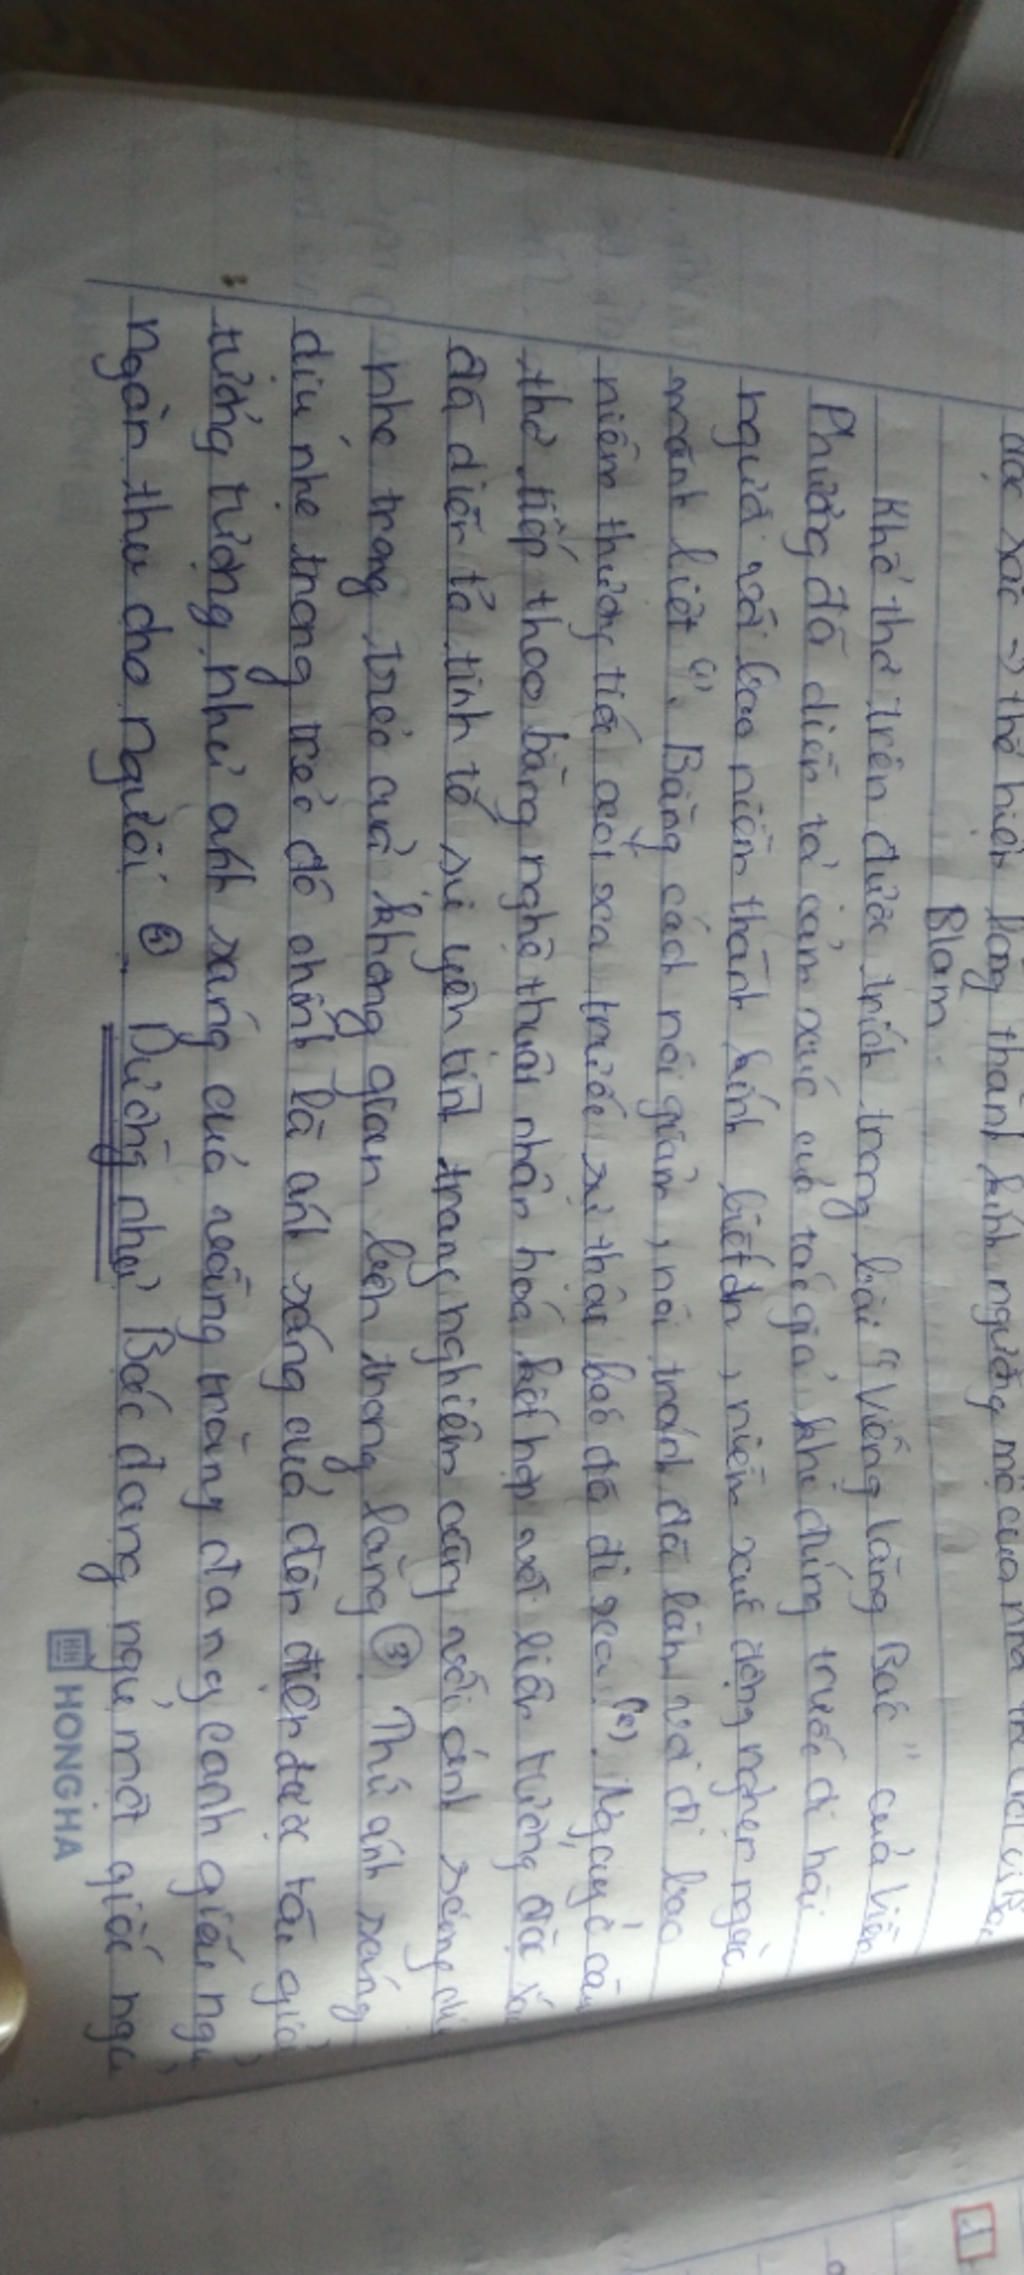 đặc sắc → thể hiện lòng thành kính ngưỡng mộ của nhà thơ
Blàm.
Khổ thơ trên được trích trong bài "Viếng lăng Bác" của Viễn
Phương đã diễn tả cảm xúc của tác giả khi đứng trước di hài
người với bao niềm thành kính biết ơn, niềm xúc động nghẹn ngào
mãnh liệt (1). Bằng cách nói giảm, nói tránh đã làm vơi đi bao
niềm thương tiếc xót xa trước sự thật bác đã đi xa (2). Ngay ở câu
thơ tiếp theo bằng nghệ thuật nhân hoá kết hợp với liên tưởng đặc sắc
đã diễn tả tinh tế sự yên tĩnh trang nghiêm cùng với ánh sáng dịu
nhẹ trong trẻo của không gian bên trong lăng (3). Thứ ánh sáng
dịu nhẹ trong trẻo đó chính là ánh sáng của đèn điện được tác giả
tưởng tượng như ánh sáng của vầng trăng đang canh giấc ngủ
ngàn thu cho người (4). Dường như Bác đang ngủ một giấc ngủ
HONG HA